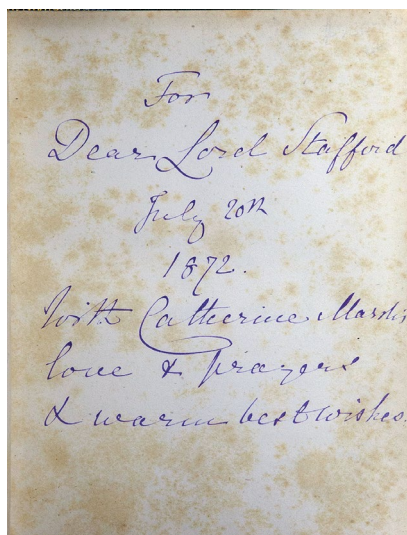 For
Dear Lord Stafford
July 20th
1872.
With Catherine Marsh's
love & prayers
& warm best wishes.